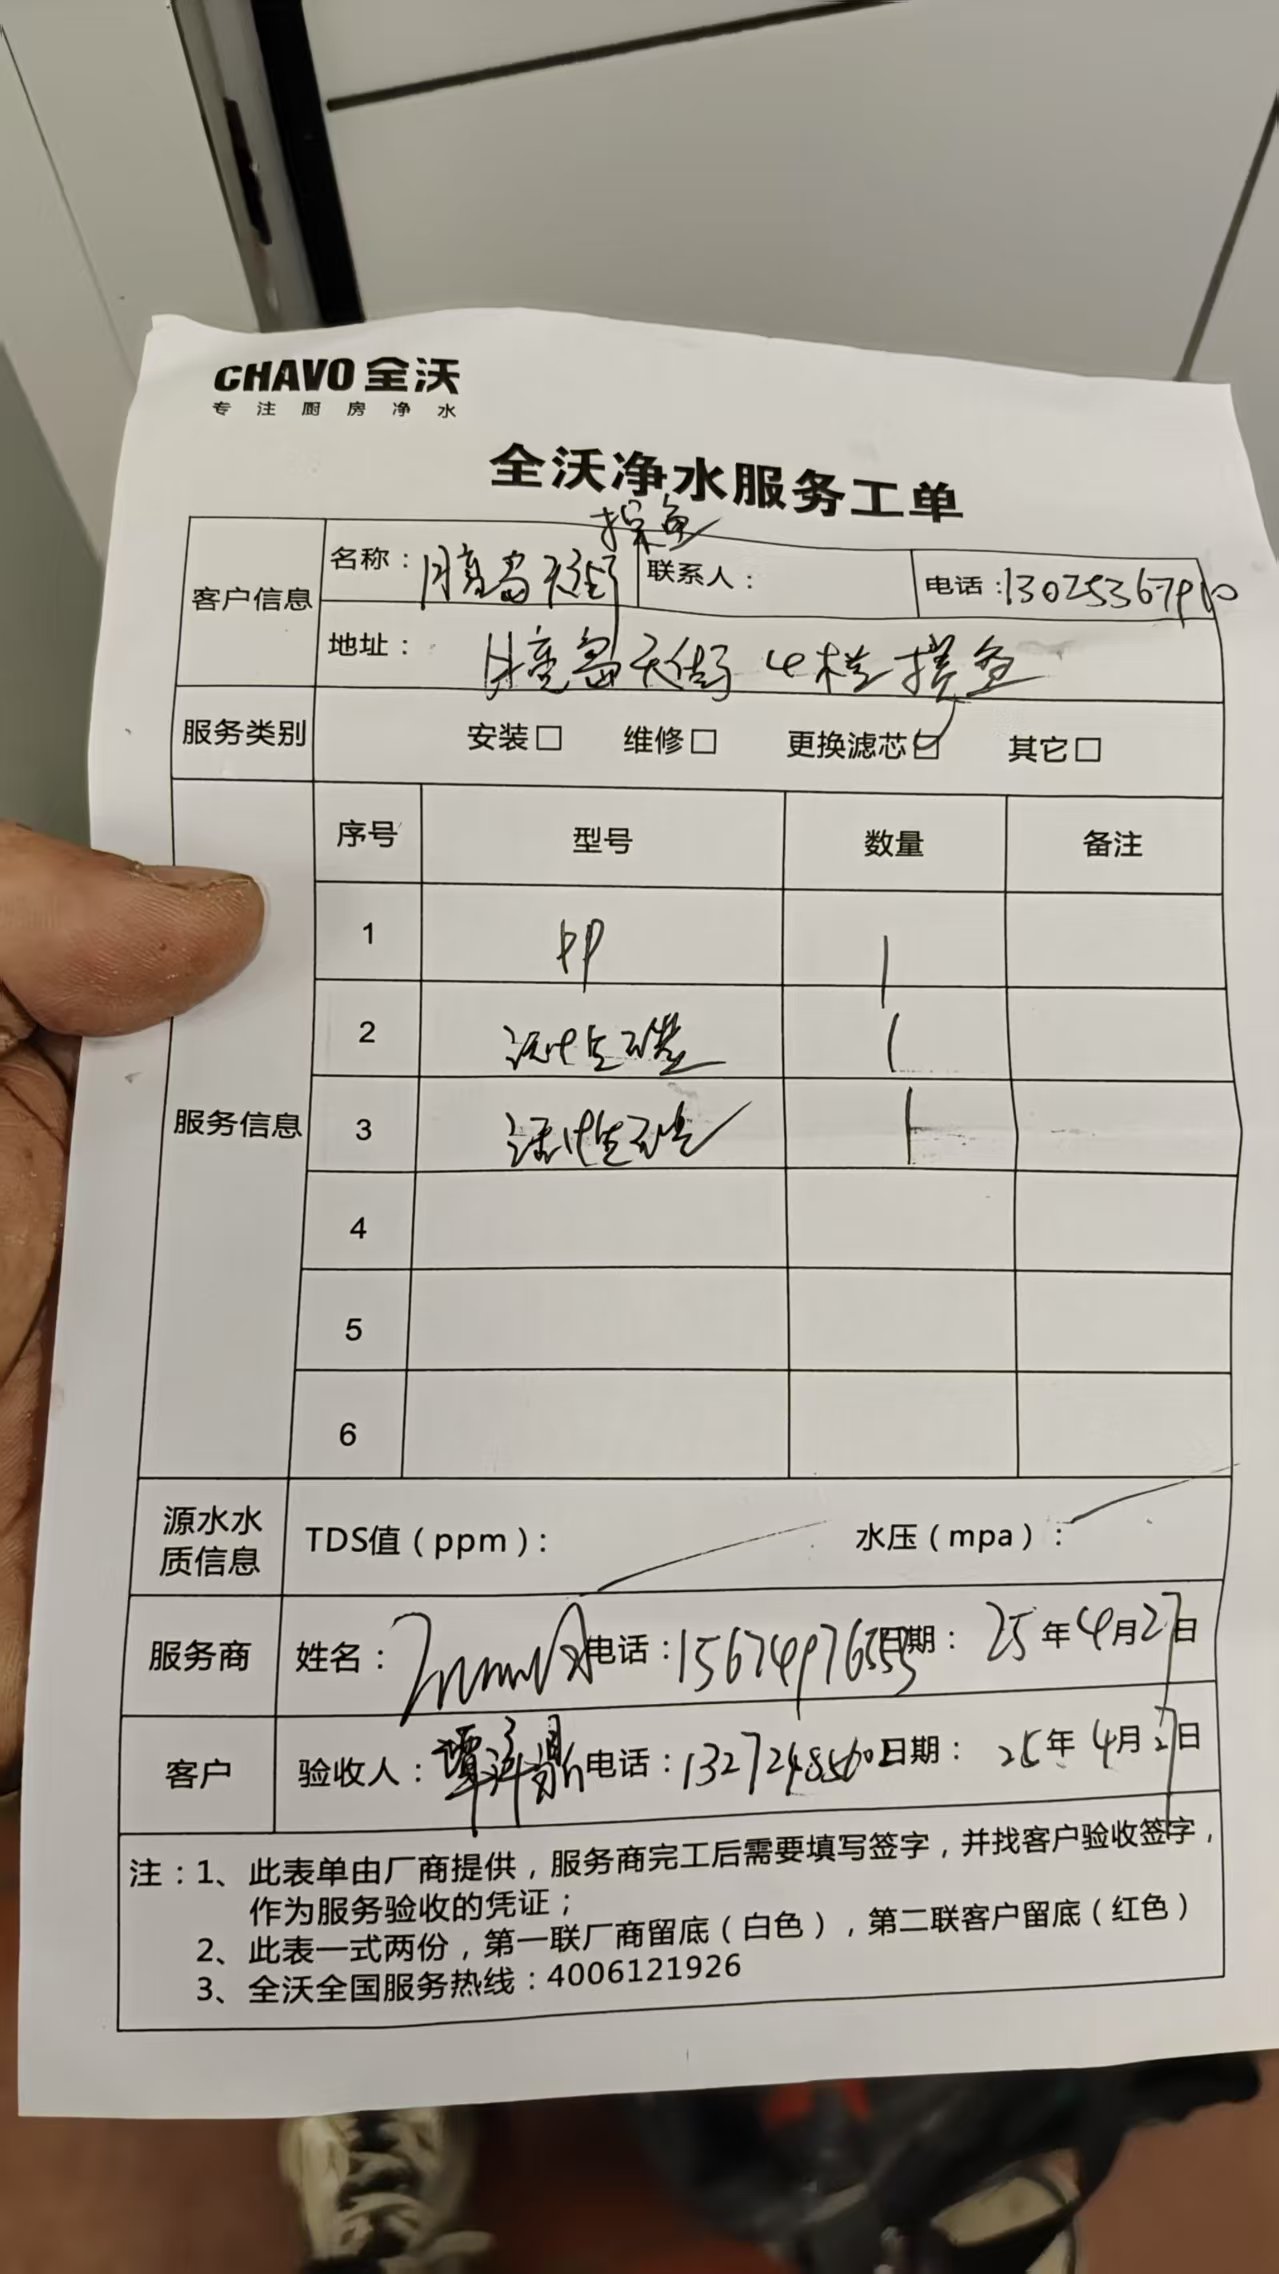 CHAVO 全沃
专注厨房净水
全沃净水服务工单
客户信息
名称：月亮岛天街 探鱼
联系人：
电话：13025367910
地址：月亮岛天街 4楼 探鱼
服务类别
安装□ 维修□ 更换滤芯☑ 其它□
服务信息
序号 型号 数量 备注
1 PP 1
2 活性碳 1
3 活性碳 1
4
5
6
源水水质信息
TDS值（ppm）： 水压（mpa）：
服务商 姓名： 电话：15674976555 日期：25年4月27日
客户 验收人：谭泽鼎 电话：13272485602 日期：25年4月27日
注：1、此表单由厂商提供，服务商完工后需要填写签字，并找客户验收签字，
作为服务验收的凭证；
2、此表一式两份，第一联厂商留底（白色），第二联客户留底（红色）
3、全沃全国服务热线：4006121926